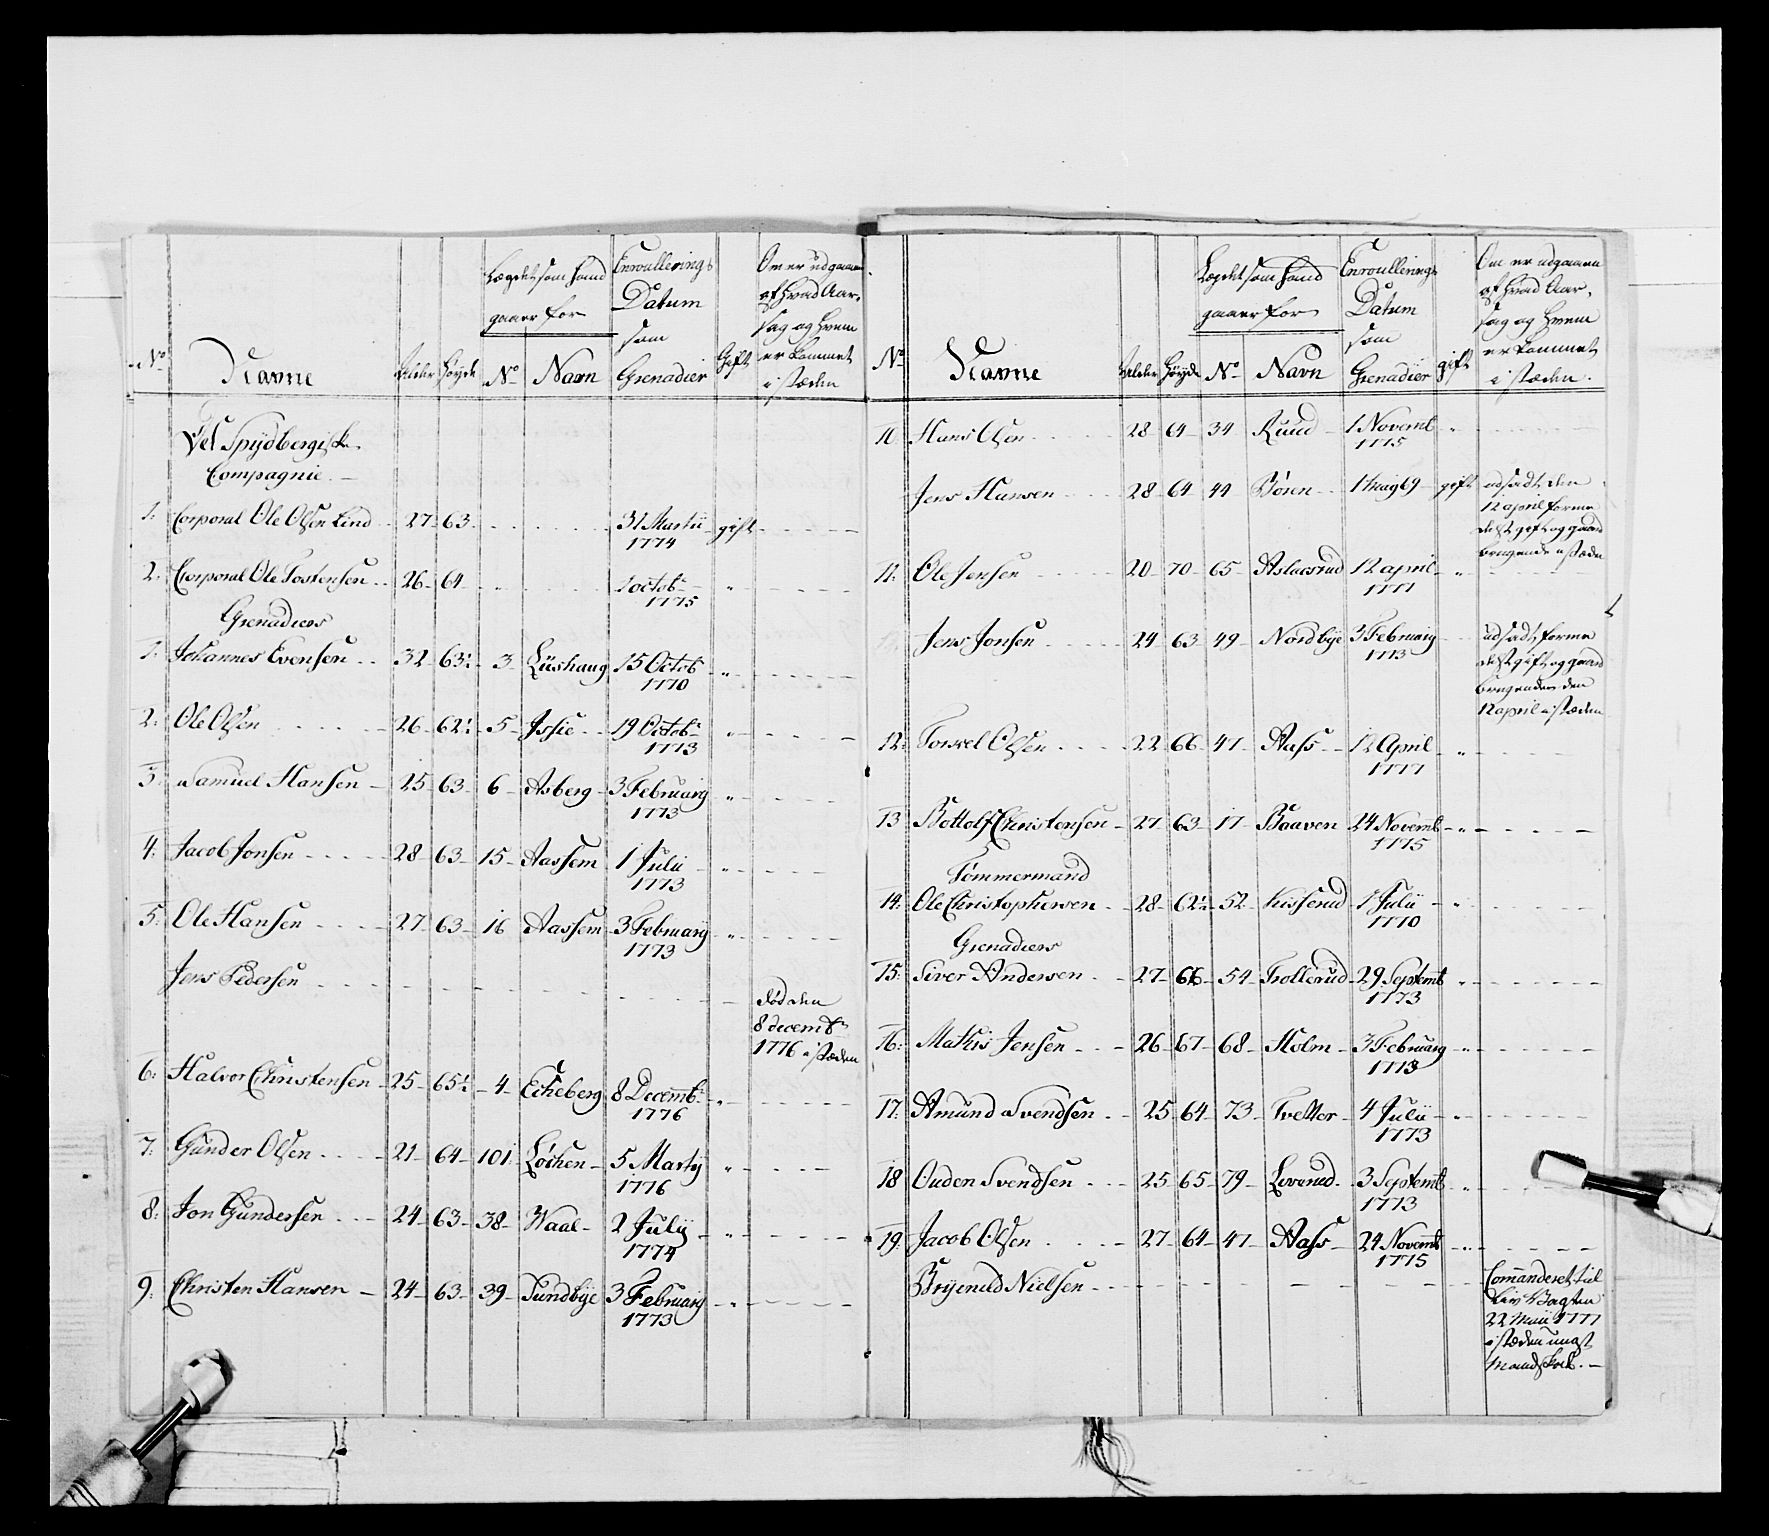 No
Navne
Alder
Høyde
Lægdet som hand
gaaer for
No
Navn
Enroullerings
Datum
som
Grenadier
Gift
Om er udgaaen
af hvad Aar-
sag og hvem
er kommet
i stæden
Vel Spydbergiske
Compagnie.
1. Corporal Ole Olsen Lind 27 63 31 Martii gift
1774
2. Corporal Ole Tostensen 26 64 1 octob
1775
Grenadiers
1. Johannes Evensen 32 63½ 3 Lüshaug 15 Octob
1770
2. Ole Olsen 26 62½ 5 Issie 19 Octob
1773
3. Samuel Hansen 25 63 6 Asberg 3 Februarij
1773
4. Jacob Jonsen 28 63 15 Aassem 1 Julii
1773
5. Ole Hansen 27 63 16 Aassem 3 Februarij
1773
Jens Pedersen død den
8 decembr
1776 i stæden
6. Halvor Christensen 25 65½ 4 Echeberg 8 Decembr
1776
7. Gunder Olsen 21 64 101 Løchen 5 Martij
1776
8. Jon Gundersen 24 63 38 Waal 2 Julij
1774
9. Christen Hansen 24 63 39 Sundbye 3 Februarij
1773
No
Navne
Alder
Høyde
Lægdet som hand
gaaer for
No
Navn
Enroullerings
Datum
som
Grenadier
gift
Om er udgaaen
af hvad Aar-
sag og hvem
er kommet
i stæden.
10. Hans Olsen 28 64 34 Ruud 1 Novemb
1775
Jens Hansen 28 64 44 Børen 1 may 69 gift udsadt den
12 april forme
delst gift og gaard
brugende i stæden
11. Ole Jensen 20 70 65 Aslacsrud 12 april
1777
Jens Jonsen 24 63 49 Nordbye 3 Februarij udsadt forme
1773 delst gift og gaard
brugende den
12 april i stæden
12. Torkel Olsen 22 66 47 Aass 12 April
1777
13 Bottolf Christensen 27 63 17 Baaven 24 Novemb
1775
Tømmermand
14. Ole Christophersen 28 62½ 52 Kisserud 1 Julii
1770
Grenadiers
15. Siver Andersen 27 66 54 Trollerud 29 Septemb
1773
16. Mathis Jensen 26 67 68 Holm 3 Februarij
1773
17. Amund Svendsen 25 64 73 Tvetter 4 Julii
1773
18 Ouden Svendsen 25 65 79 Loverud 3 Septemb
1773
19. Jacob Olsen 27 64 47 Aass 24 Novemb
1775
Brynild Nielsen Commanderet til
Liv Vagten
22 Maii 1777
i stæden ungt
Mandskab.